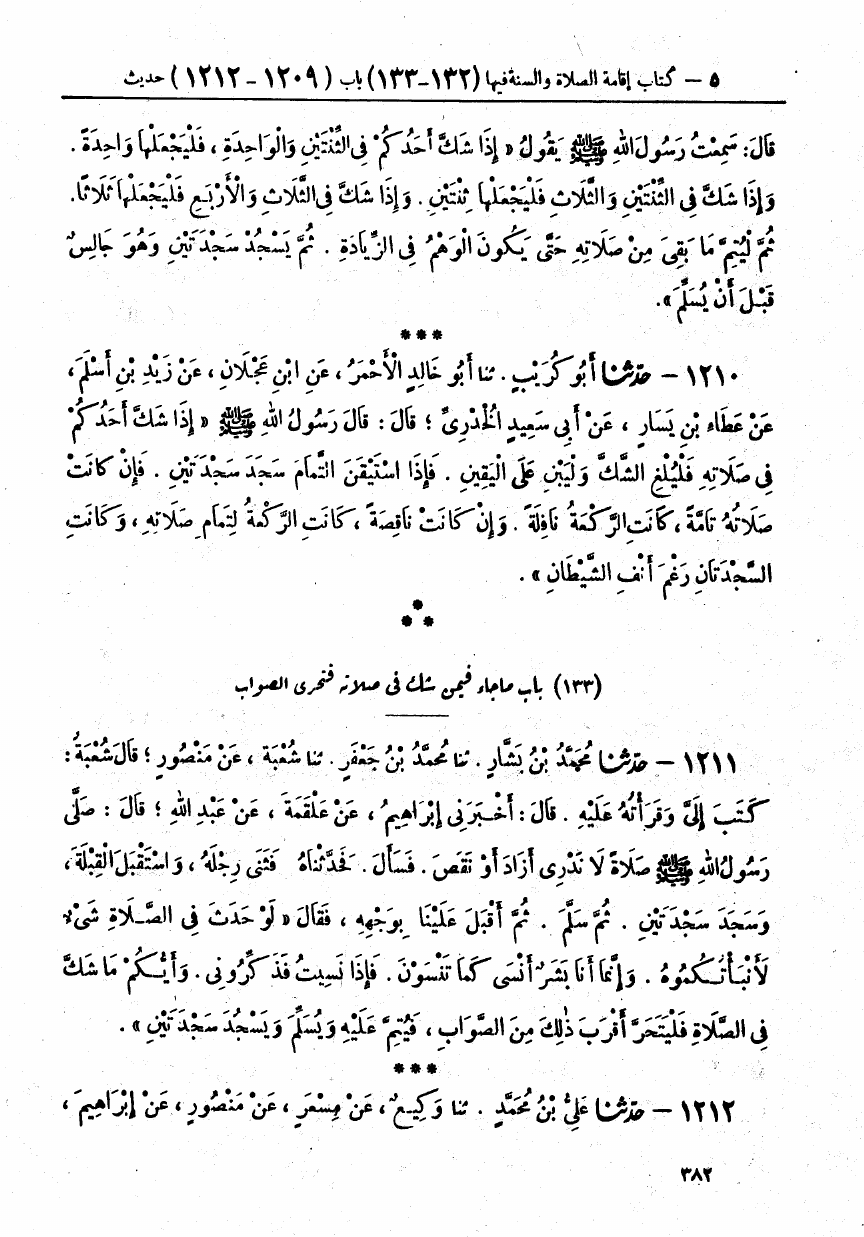 ٥ – كتاب إقامة الصلاة والسنة فيها (١٣٢-١٣٣) باب (١٢٠٩ - ١٢١٢) حديث
قَالَ: سَمِعْتُ رَسُولَ اللهِ ﷺ يَقُولُ « إِذَا شَكَّ أَحَدُكُمْ فِى الثِّنْتَيْنِ وَالْوَاحِدَةِ ، فَلْيَجْعَلْهَا وَاحِدَةً .
وَإِذَا شَكَّ فِى الثِّنْتَيْنِ وَالثَّلَاثِ فَلْيَجْعَلْهَا ثِنْتَيْنِ . وَإِذَا شَكَّ فِى الثَّلَاثِ وَالْأَرْبَعِ فَلْيَجْعَلْهَا ثَلَاثًا.
ثُمَّ لْيُتِمَّ مَا بَقِىَ مِنْ صَلَاتِهِ حَتَّى يَكُونَ الْوَهْمُ فِى الزِّيَادَةِ . ثُمَّ يَسْجُدْ سَجْدَتَيْنِ وَهُوَ جَالِسٌ
قَبْلَ أَنْ يُسَلِّمَ ».
***
١٢١٠ – حَدَّثَنَا أَبُو كُرَيْبٍ . ثنا أَبُو خَالِدٍ الْأَحْمَرُ ، عَنِ ابْنِ عَجْلَانِ ، عَنْ زَيْدِ بْنِ أَسْلَمَ ،
عَنْ عَطَاءِ بْنِ يَسَارٍ ، عَنْ أَبِى سَعِيدٍ الْخُدْرِىِّ ؛ قَالَ : قَالَ رَسُولُ اللهِ ﷺ « إِذَا شَكَّ أَحَدُكُمْ
فِى صَلَاتِهِ فَلْيُلْغِ الشَّكَّ وَلْيَبْنِ عَلَى الْيَقِينِ . فَإِذَا اسْتَيْقَنَ التَّمَامَ سَجَدَ سَجْدَتَيْنِ . فَإِنْ كَانَتْ
صَلَاتُهُ تَامَّةً ، كَانَتِ الرَّكْعَةُ نَافِلَةً . وَإِنْ كَانَتْ نَاقِصَةً ، كَانَتِ الرَّكْعَةُ لِتَمَامِ صَلَاتِهِ ، وَكَانَتِ
السَّجْدَتَانِ رَغْمَ أَنْفِ الشَّيْطَانِ » .
***
(١٣٣) باب ماجاء فيمن شك فى صلاته فتحرى الصواب
١٢١١ – حَدَّثَنَا مُحَمَّدُ بْنُ بَشَّارٍ . ثنا مُحَمَّدُ بْنُ جَعْفَرٍ . ثنا شُعْبَةُ ، عَنْ مَنْصُورٍ ؛ قَالَ شُعْبَةُ :
كَتَبَ إِلَىَّ وَقَرَأْتُهُ عَلَيْهِ . قَالَ : أَخْبَرَنِى إِبْرَاهِيمُ ، عَنْ عَلْقَمَةَ ، عَنْ عَبْدِ اللهِ ؛ قَالَ : صَلَّى
رَسُولُ اللهِ ﷺ صَلَاةً لَا نَدْرِى أَزَادَ أَوْ نَقَصَ . فَسَأَلَ . فَحَدَّثْنَاهُ فَثَنَى رِجْلَهُ ، وَاسْتَقْبَلَ الْقِبْلَةَ ،
وَسَجَدَ سَجْدَتَيْنِ . ثُمَّ سَلَّمَ . ثُمَّ أَقْبَلَ عَلَيْنَا بِوَجْهِهِ ، فَقَالَ « لَوْ حَدَثَ فِى الصَّلَاةِ شَىْءٌ
لَأَنْبَأْتُكُمُوهُ . وَإِنَّمَا أَنَا بَشَرٌ أَنْسَى كَمَا تَنْسَوْنَ . فَإِذَا نَسِيتُ فَذَكِّرُونِى . وَأَيُّكُمْ مَا شَكَّ
فِى الصَّلَاةِ فَلْيَتَحَرَّ أَقْرَبَ ذٰلِكَ مِنَ الصَّوَابِ ، فَيُتِمَّ عَلَيْهِ وَيُسَلِّمَ وَيَسْجُدَ سَجْدَتَيْنِ » .
***
١٢١٢ – حَدَّثَنَا عَلِىُّ بْنُ مُحَمَّدٍ . ثنا وَكِيعٌ ، عَنْ مِسْعَرٍ ، عَنْ مَنْصُورٍ ، عَنْ إِبْرَاهِيمَ ،
٣٨٢